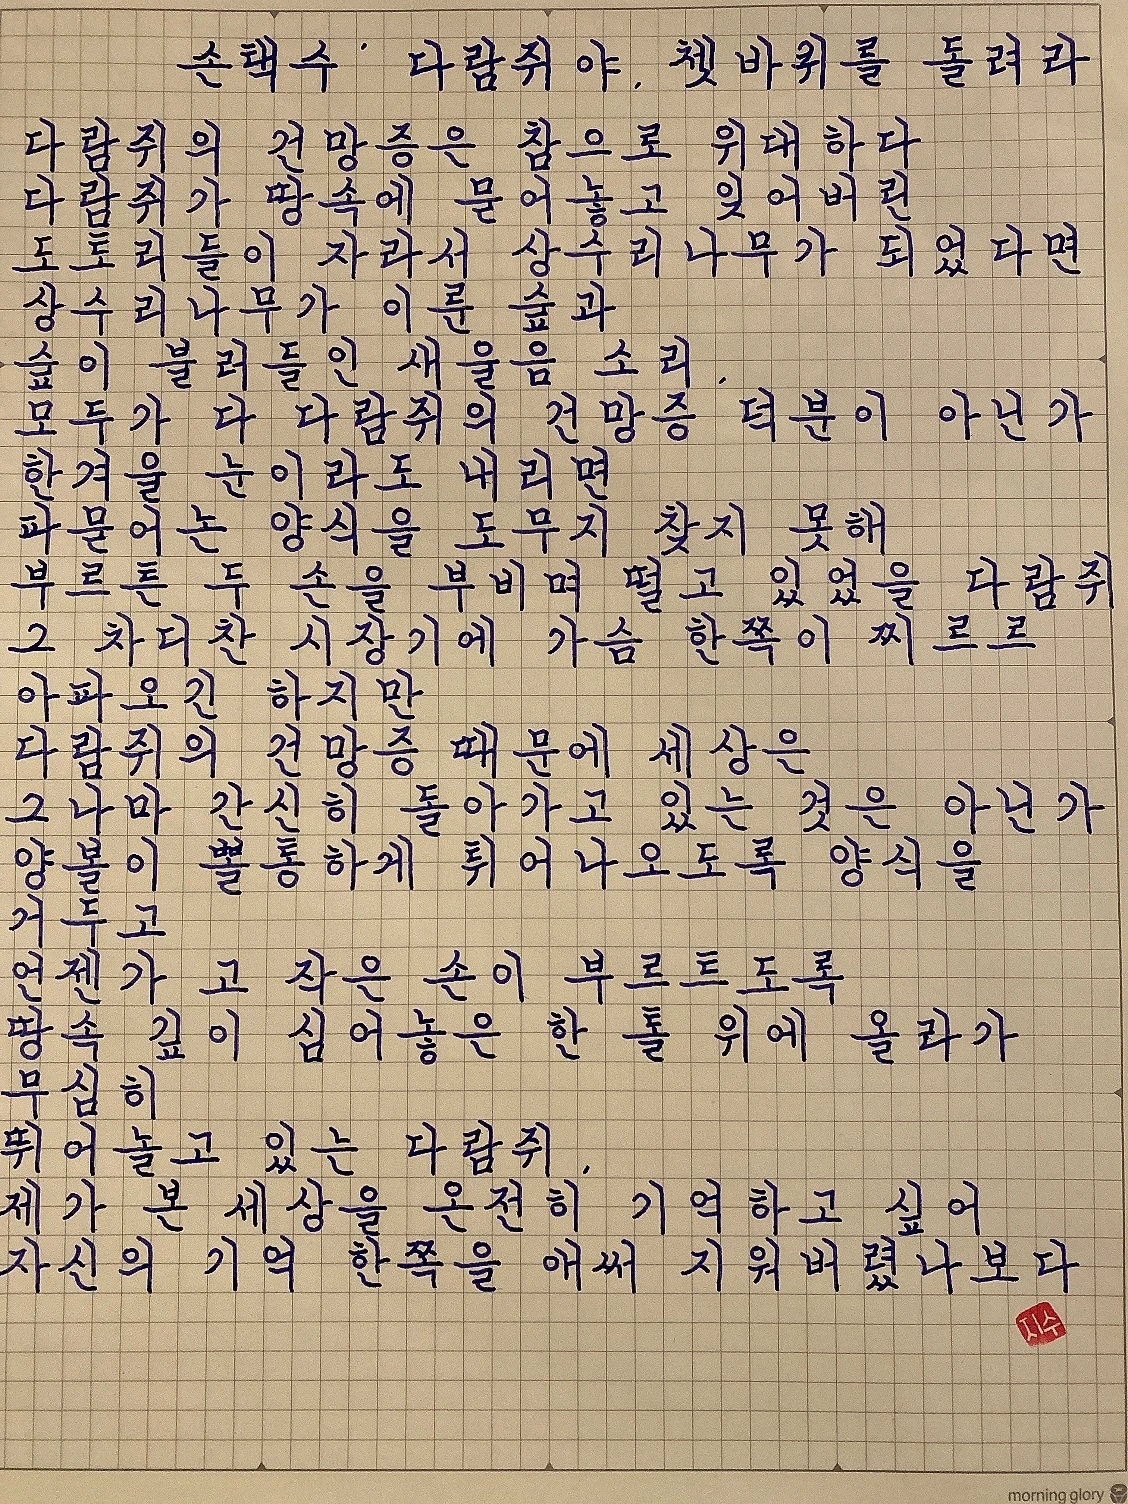 손택수· 다람쥐야, 쳇바퀴를 돌려라
다람쥐의 건망증은 참으로 위대하다
다람쥐가 땅속에 묻어놓고 잊어버린
도토리들이 자라서 상수리나무가 되었다면
상수리나무가 이룬 숲과
숲이 불러들인 새울음 소리,
모두가 다 다람쥐의 건망증 덕분이 아닌가
한겨울 눈이라도 내리면
파묻어논 양식을 도무지 찾지 못해
부르튼 두 손을 부비며 떨고 있었을 다람쥐
그 차디찬 시장기에 가슴 한쪽이 찌르르
아파오긴 하지만
다람쥐의 건망증 때문에 세상은
그나마 간신히 돌아가고 있는 것은 아닌가
양볼이 뽈통하게 튀어나오도록 양식을
거두고
언젠가 고 작은 손이 부르트도록
땅속 깊이 심어놓은 한 톨 위에 올라가
무심히
뛰어놀고 있는 다람쥐,
제가 본 세상을 온전히 기억하고 싶어
자신의 기억 한쪽을 애써 지워버렸나보다
지수
morning glory